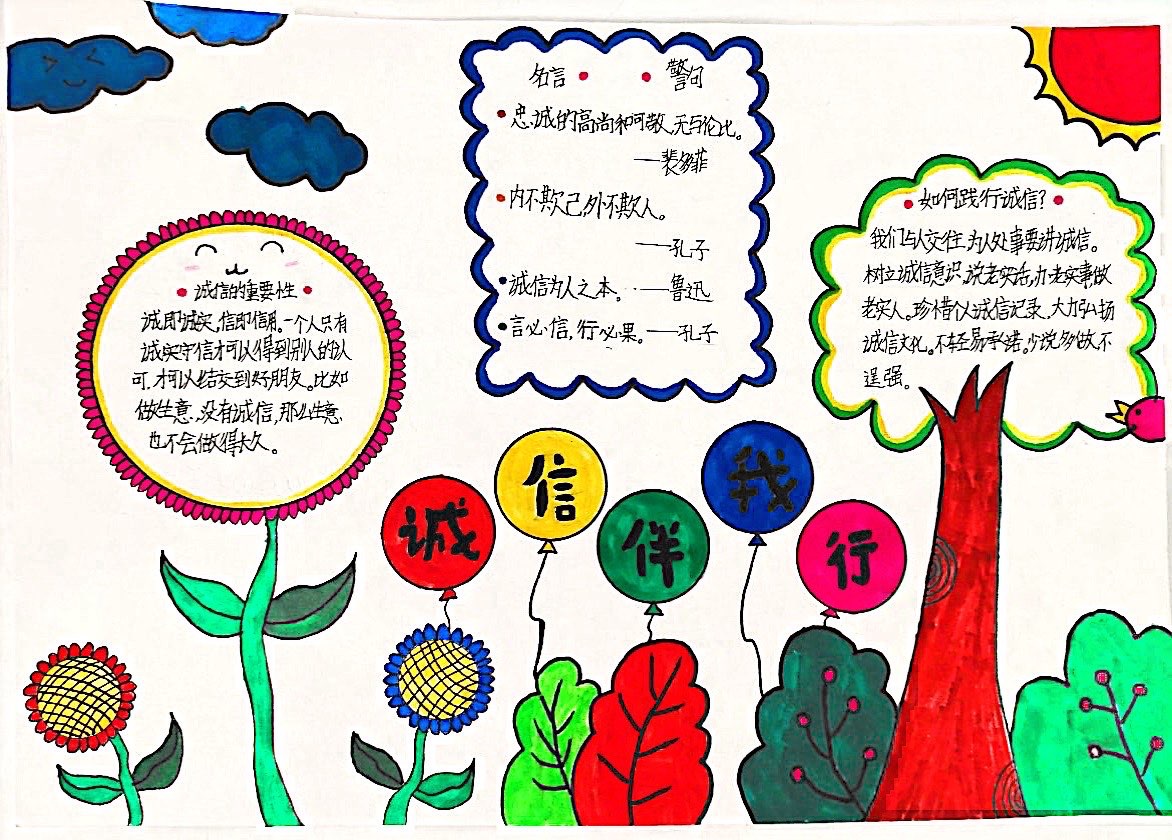 名言 • • 警句
• 忠诚的高尚和可敬,无与伦比。
——裴多菲
• 内不欺己,外不欺人。
——孔子
• 诚信为人之本。——鲁迅
• 言必信,行必果。——孔子
• 如何践行诚信? •
我们与人交往,为人处事要讲诚信。
树立诚信意识,说老实话,办老实事做
老实人。珍惜个人诚信记录,大力弘扬
诚信文化。不轻易承诺。少说多做,不
逞强。
• 诚信的重要性 •
诚即诚实,信即信用。一个人只有
诚实守信才可以得到别人的认
可,才可以结交到好朋友。比如
做生意,没有诚信,那么生意
也不会做得太久。
诚信伴我行